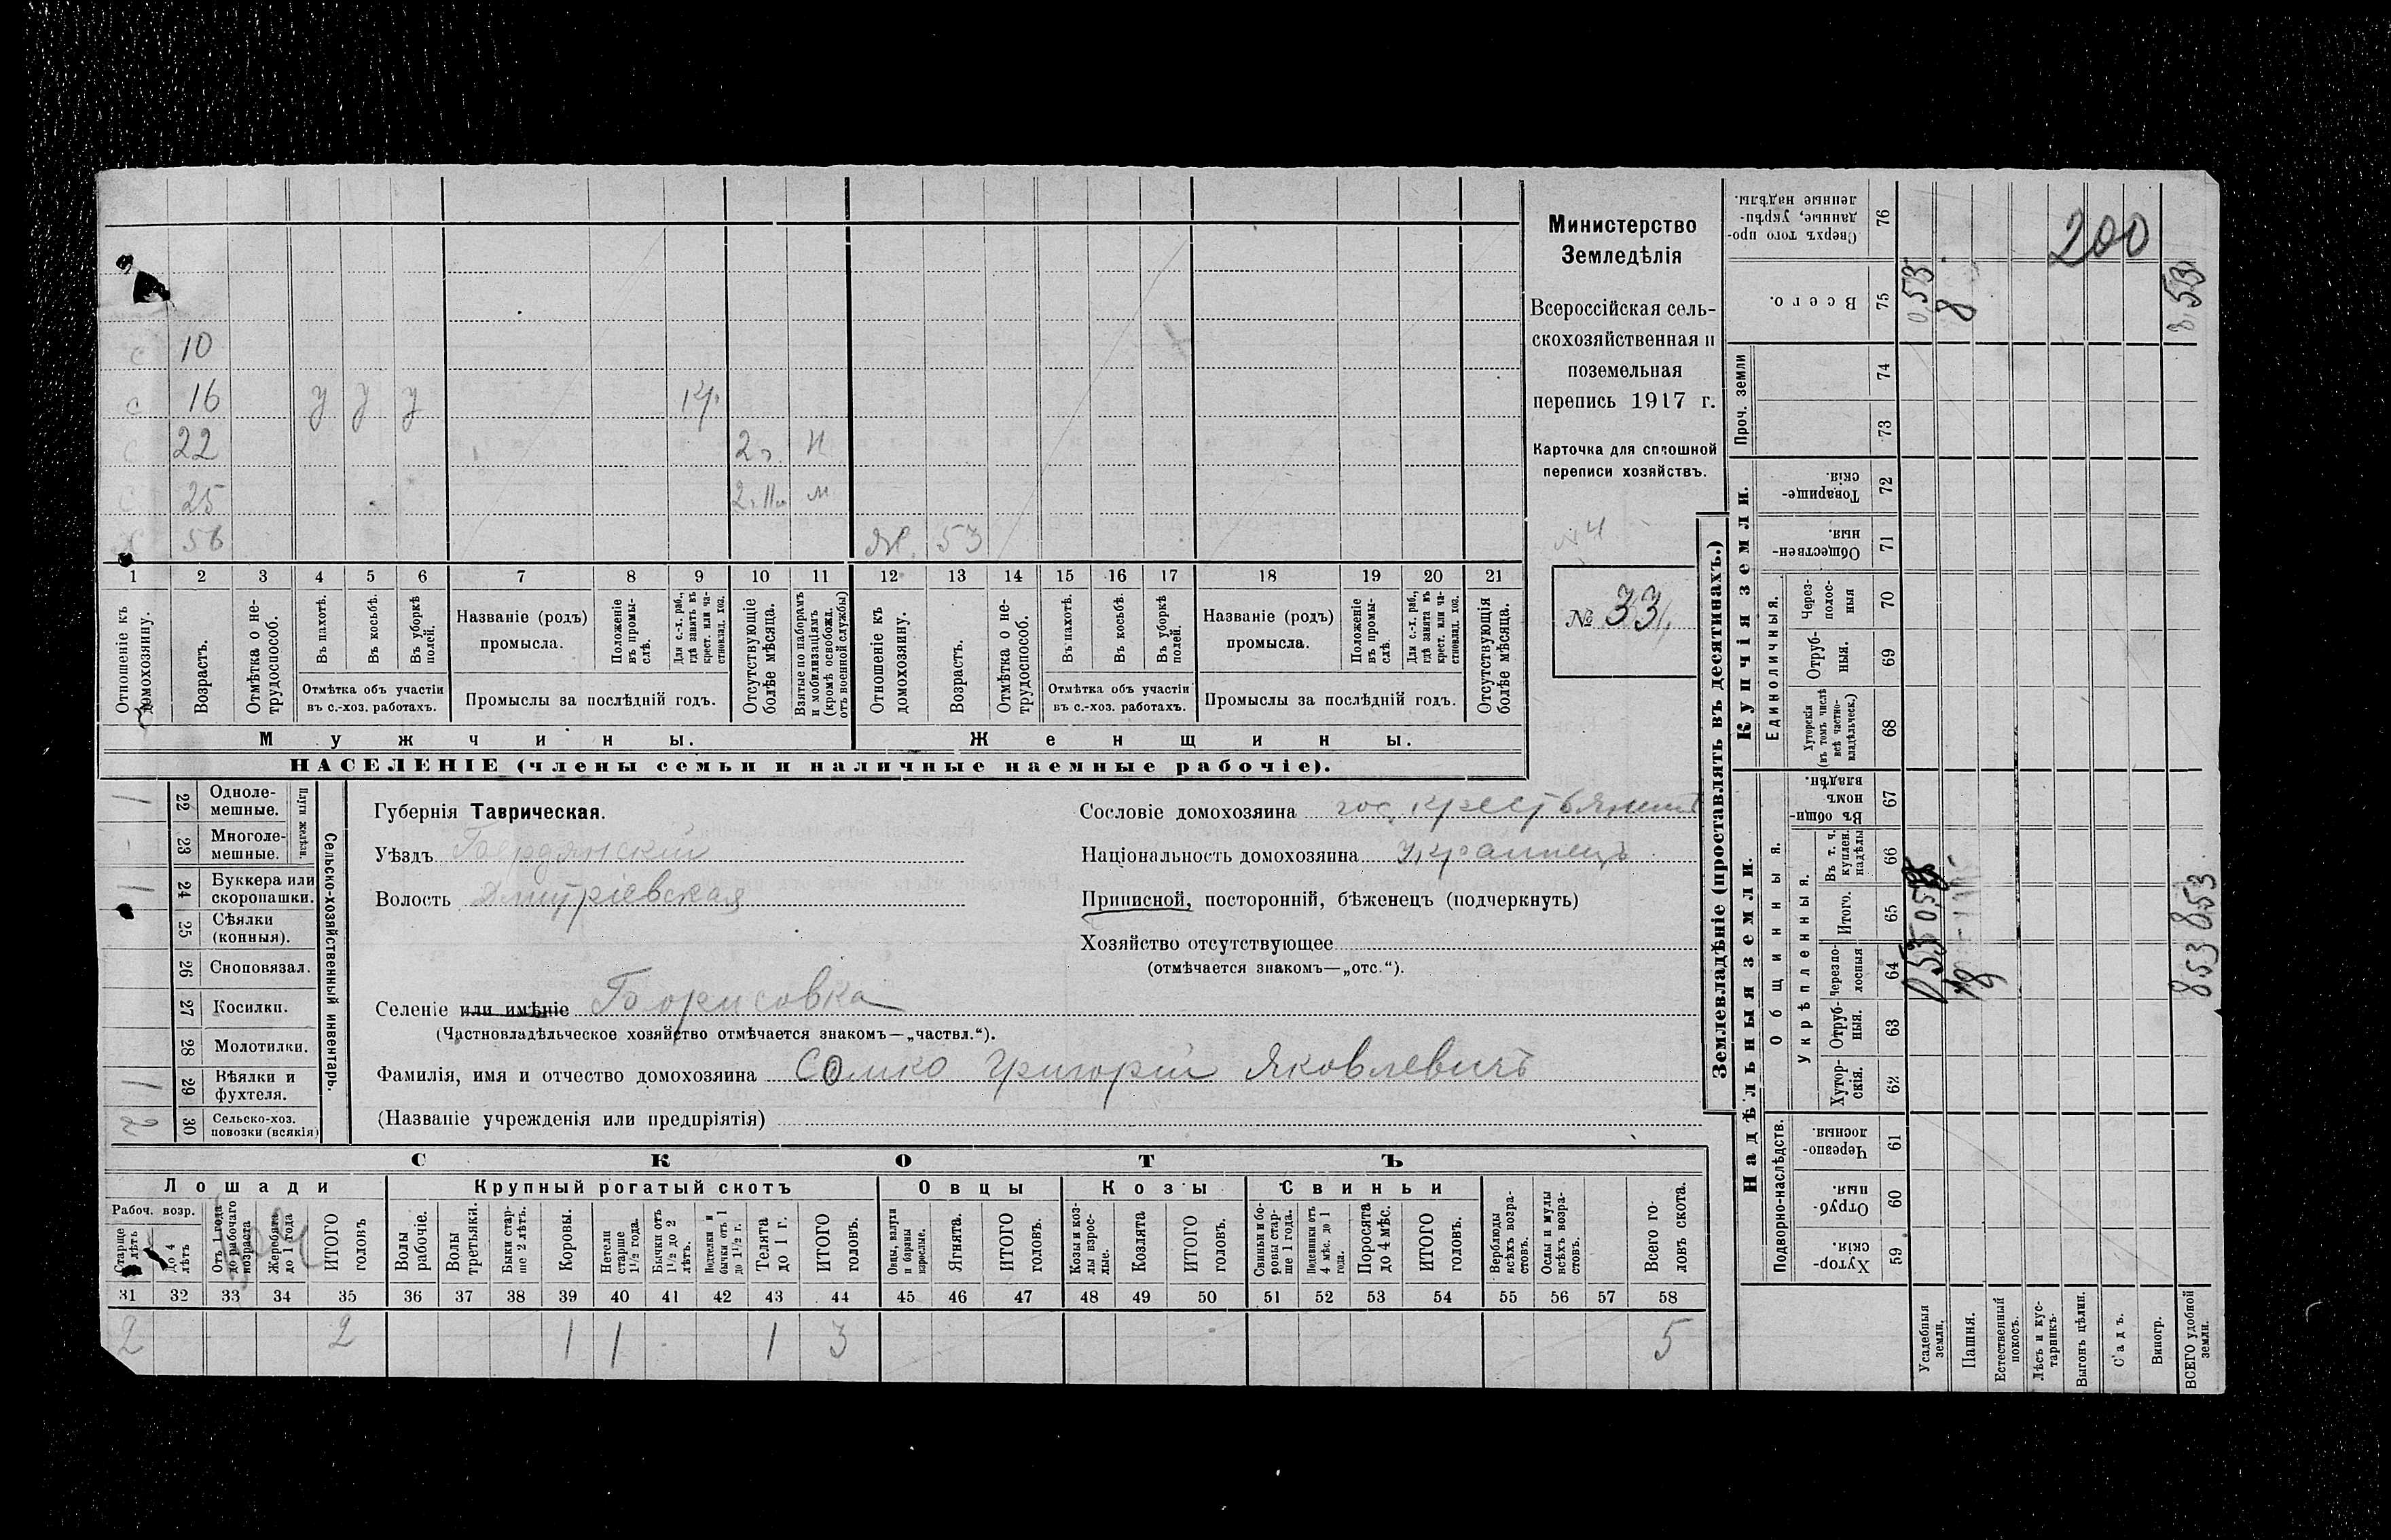 Министерство
Земледѣлія
Всероссійская сель-
скохозяйственная и
поземельная
перепись 1917 г.
Карточка для сплошной
переписи хозяйствъ.
№ 4
№ 33
с 10
с 16 у у у кр.
с 22 2 г. н
с 25 м
х 56 ж. 53
1 2 3 4 5 6 7 8 9 10 11 12 13 14 15 16 17 18 19 20 21
Отношеніе къ домохозяину.
Возрастъ.
Отмѣтка о не-трудоспособ.
Въ пахотѣ.
Въ косьбѣ.
Въ уборкѣ полей.
Отмѣтка объ участіи въ с.-хоз. работахъ.
Названіе (родъ) промысла.
Положеніе въ промы-слѣ.
Для с.-х. раб., гдѣ занятъ въ крест. или ча-стновлад. хоз.
Промыслы за послѣдній годъ.
Отсутствующіе болѣе мѣсяца.
Взятые по наборамъ и мобилизаціямъ (кромѣ освобожд. отъ военной службы)
Отношеніе къ домохозяину.
Возрастъ.
Отмѣтка о не-трудоспособ.
Въ пахотѣ.
Въ косьбѣ.
Въ уборкѣ полей.
Отмѣтка объ участіи въ с.-хоз. работахъ.
Названіе (родъ) промысла.
Положеніе въ промы-слѣ
Для с.-х. раб., гдѣ занята въ крест. или ча-стновлад. хоз.
Промыслы за послѣдній годъ.
Отсутствующія болѣе мѣсяца.
Мужчины. Женщины.
НАСЕЛЕНІЕ (члены семьи и наличные наемные рабочіе).
Сельско-хозяйственный инвентарь.
Плуги желѣзн.
1 22 Однолемешные.
- 23 Многолемешные.
1 24 Буккера или скоропашки.
25 Сѣялки (конныя).
26 Сноповязал.
27 Косилки.
28 Молотилки.
1 29 Вѣялки и фухтеля.
2 30 Сельско-хоз. повозки (всякія)
Губернія Таврическая.
Уѣздъ Бердянскій
Волость Дмитріевская
Селеніе или имѣніе Борисовка
(Частновладѣльческое хозяйство отмѣчается знакомъ—„частвл.“).
Фамилія, имя и отчество домохозяина Сомко Григорій Яковлевичъ
(Названіе учрежденія или предпріятія)
Сословіе домохозяина гос. крестьянинъ
Національность домохозяина Украинецъ
Приписной, посторонній, бѣженецъ (подчеркнуть)
Хозяйство отсутствующее
(отмѣчается знакомъ—„отс.“).
СКОТЪ
Лошади Крупный рогатый скотъ Овцы Козы Свиньи
Рабоч. возр.
Старше 4 лѣтъ
До 4 лѣтъ
Отъ 1 года до рабочаго возраста
Жеребята до 1 года
ИТОГО головъ
Волы рабочіе.
Волы третьяки.
Быки стар-ше 2 лѣтъ.
Коровы.
Нетели старше 1½ года.
Бычки отъ 1½ до 2 лѣтъ.
Подтелки и бычки отъ 1 до 1½ г.
Телята до 1 г.
ИТОГО головъ.
Овцы, валухи и бараны взрослые.
Ягнята.
ИТОГО головъ.
Козы и коз-лы взрос-лые.
Козлята
ИТОГО головъ.
Свиньи и бо-ровы стар-ше 1 года.
Подсвинки отъ 4 мѣс. до 1 года.
Поросята до 4 мѣс.
ИТОГО головъ.
Верблюды всѣхъ возра-стовъ.
Ослы и мулы всѣхъ возра-стовъ.
Всего го-ловъ скота.
31 32 33 34 35 36 37 38 39 40 41 42 43 44 45 46 47 48 49 50 51 52 53 54 55 56 57 58
2 2 1 1 1 3 5
Землевладѣніе (проставлять въ десятинахъ.)
Надѣльныя земли. Купчія земли. Проч. земли
Подворно-наслѣдств.
Общинныя.
Укрѣпленныя.
Единоличныя.
59 Хутор-скія.
60 Отруб-ныя.
61 Черезпо-лосныя.
62 Хутор-скія.
63 Отруб-ныя.
64 Черезпо-лосныя
65 Итого.
66 Въ т. ч. куплен. надѣлы
67 Въ общи-номъ владѣн.
68 Хуторскія (въ томъ числѣ всѣ частно-владѣльческ.)
69 Отруб-ныя.
70 Через-полос-ныя
71 Обществен-ныя.
72 Товарище-скія.
73
74
75 Всего.
76 Сверхъ того про-данные, укрѣп-ленные надѣлы.
Усадебныя земли.
0,53
Пашня.
8 8
Естественный покосъ.
Лѣсъ и кус-тарникъ.
Выгонъ цѣлин.
Садъ.
Виногр.
ВСЕГО удобной земли.
853 853 8,53
200